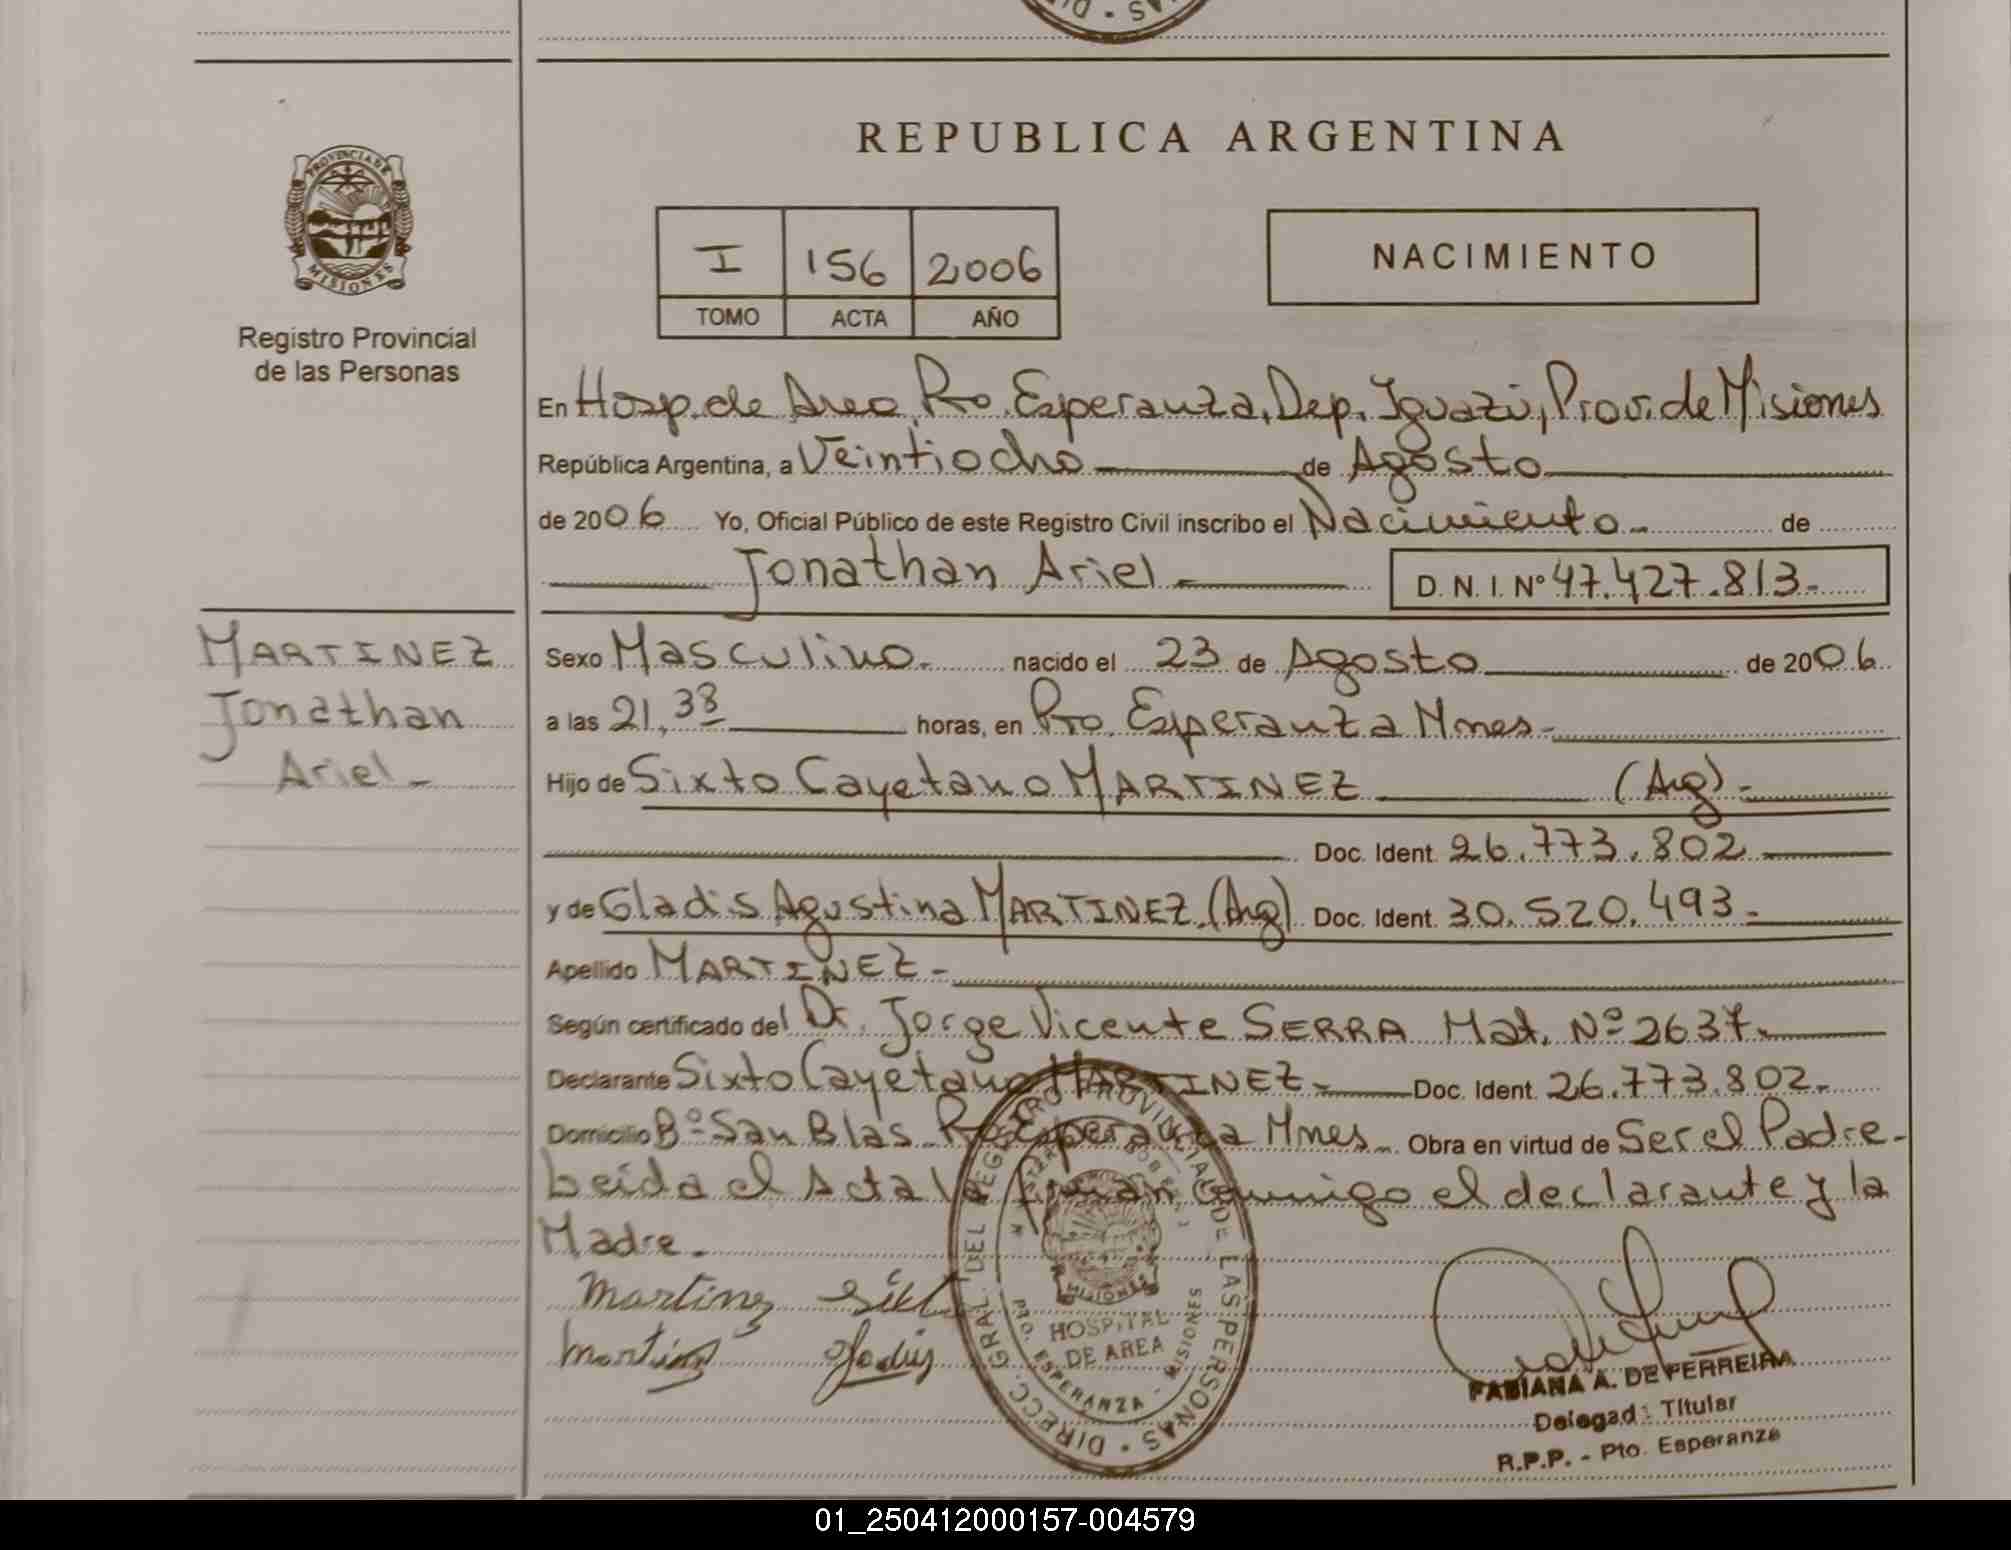 REPUBLICA ARGENTINA
PROVINCIA DE
MISIONES
Registro Provincial
de las Personas
I 156 2006
TOMO ACTA AÑO
NACIMIENTO
En Hosp. de Area Pto. Esperanza, Dep. Iguazú, Prov. de Misiones
República Argentina, a Veintiocho de Agosto
de 2006 Yo, Oficial Público de este Registro Civil inscribo el Nacimiento de
Jonathan Ariel D. N. I. Nº 47.427.813.-
MARTINEZ
Jonathan
Ariel -
Sexo Masculino.- nacido el 23 de Agosto de 2006
a las 21,38 horas, en Pto. Esperanza Mnes-
Hijo de Sixto Cayetano MARTINEZ (Arg).-
Doc. Ident. 26.773.802
y de Gladis Agustina MARTINEZ (Arg) Doc. Ident. 30.520.493-
Apellido MARTINEZ-
Según certificado del Dr. Jorge Vicente SERRA Mat. Nº 2637.
Declarante Sixto Cayetano MARTINEZ- Doc. Ident. 26.773.802.-
Domicilio Bº San Blas Pto Esperanza Mnes. Obra en virtud de Ser el Padre-
Leida el Acta la firman conmigo el declarante y la
Madre.
Martinez Sixt
Martinez Gladis
DIRECC. GRAL. DEL REGISTRO PROVINCIAL DE LAS PERSONAS
MISIONES
HOSPITAL
DE AREA
PTO. ESPERANZA - MISIONES
FABIANA A. DE FERREIRA
Delegada Titular
R.P.P. - Pto. Esperanza
01_250412000157-004579